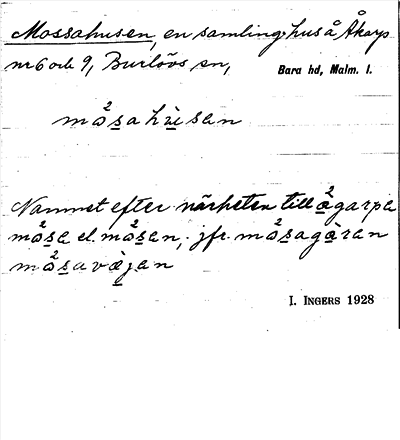 Mossahusen, en samling hus å Åkarps
nr 6 och 9, Burlövs sn,
Bara hd, Malm. l.
måsahusen
Namnet efter närheten till ågarpa
måsa el. måsen, jfr. måsagåren
måsavæjen
I. INGERS 1928